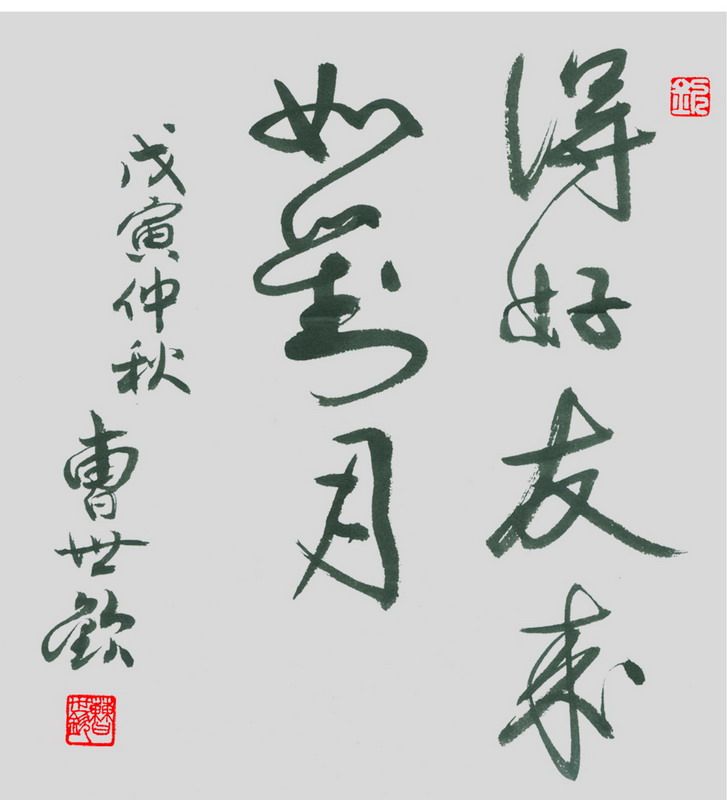 得好友来
如對月
戊寅仲秋
曹世欽